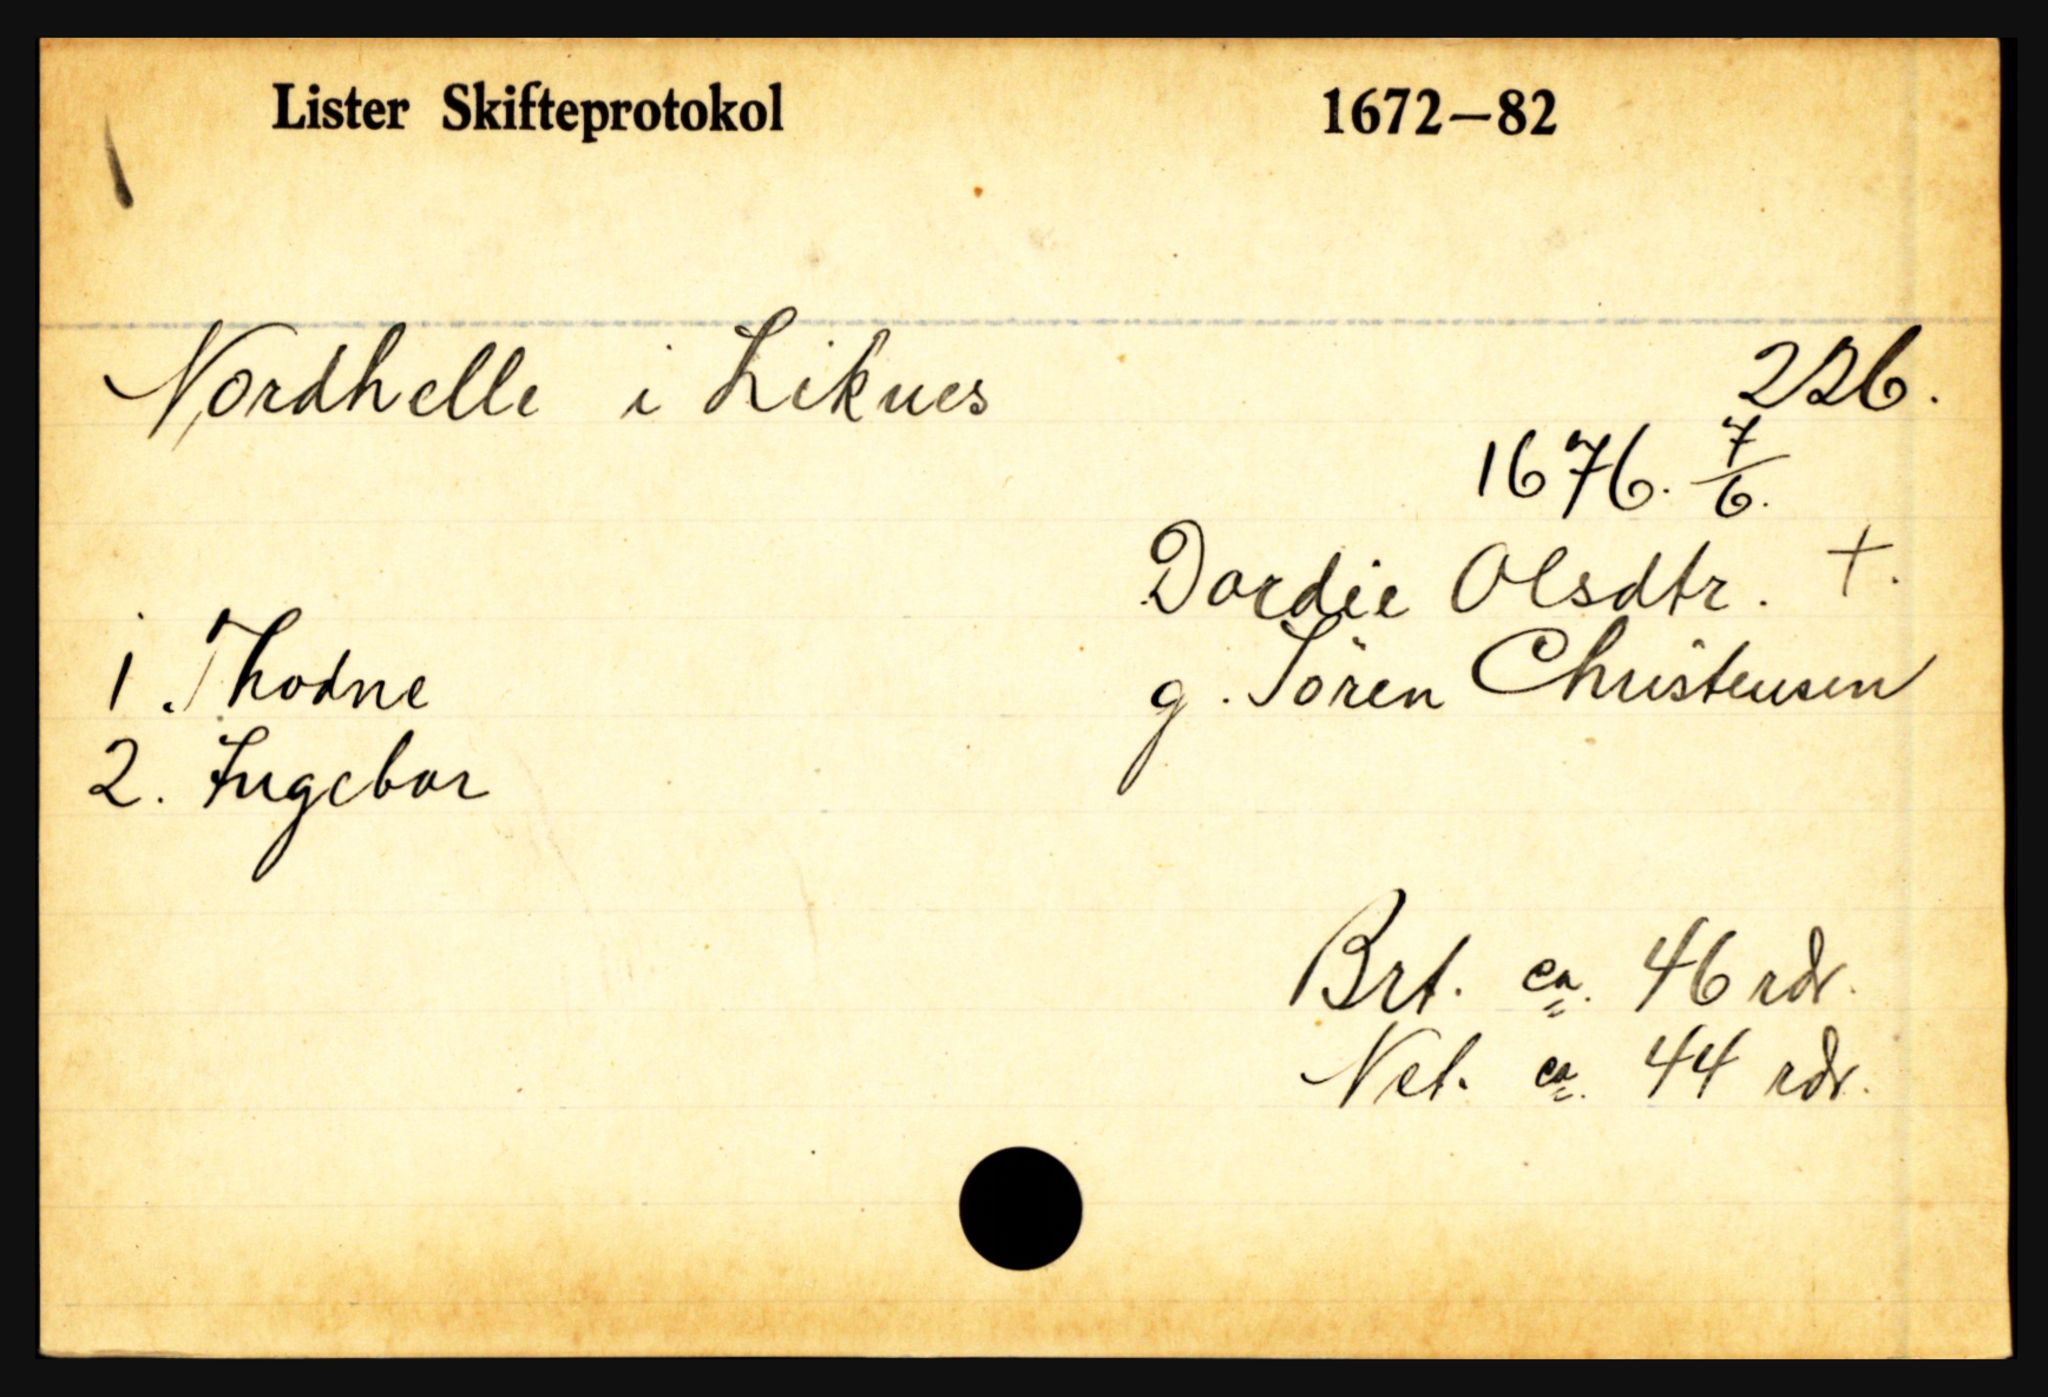 Lister Skifteprotokol 1672—82
Nordhelle i Liknes 226.
1676. 7/6.
Dordie Olsdtr. †.
1. Thodne g. Sören Christensen
2. Ingebor
Brt. ca. 46 rdr.
Net. ca. 44 rdr.